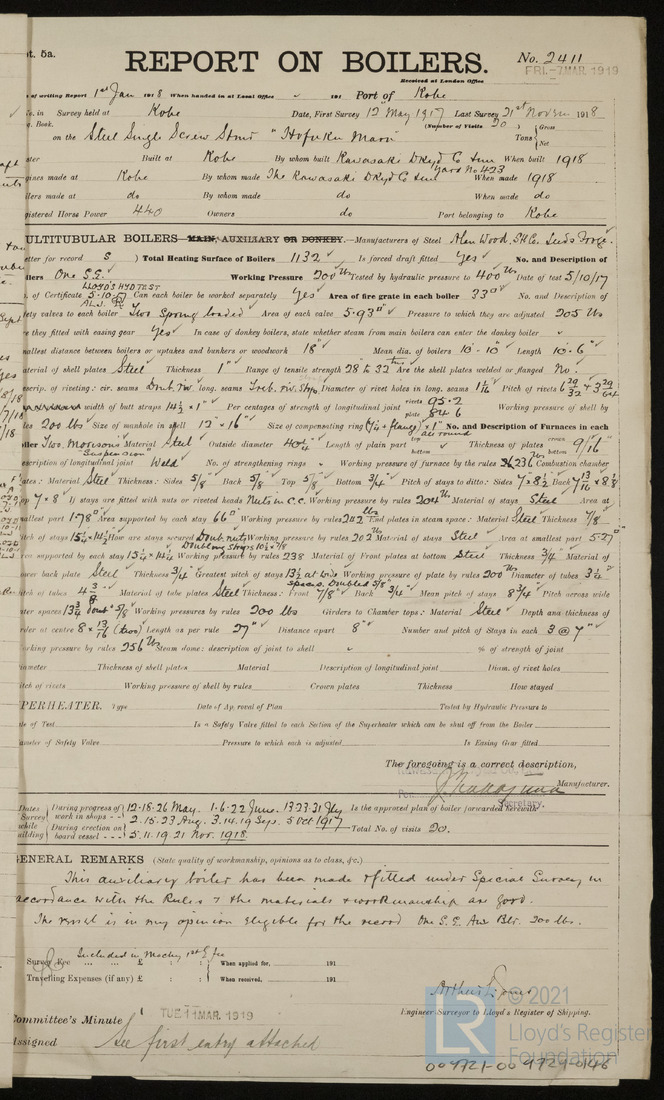 pt. 5a.
REPORT ON BOILERS.
No. 2411
Received at London Office FRI. 7 MAR 1919
of writing Report 1st Jan 1918 When handed in at Local Office 191 Port of Kobe
No. in Survey held at Kobe Date, First Survey 12th May 1917 Last Survey 21st Novem 1918
g. Book. (Number of Visits 20)
on the Steel Single Screw Strmr "Hofuku Maru" Tons { Gross Net
ster Built at Kobe By whom built Kawasaki DKyd Co When built 1918
Yard No 423
gines made at Kobe By whom made The Kawasaki DKyd Co When made 1918
ilers made at do By whom made do When made do
gistered Horse Power 440 Owners do Port belonging to Kobe
ULTITUBULAR BOILERS MAIN, AUXILIARY OR DONKEY.—Manufacturers of Steel Alan Wood, S.H.Co. Leeds Forge.
etter for record S ) Total Heating Surface of Boilers 1132 Is forced draft fitted Yes No. and Description of
ilers One S.E. Working Pressure 200 lbs Tested by hydraulic pressure to 400 lbs Date of test 5/10/17
LLOYD'S HYD TEST
. of Certificate 5-10-17 Can each boiler be worked separately Yes Area of fire grate in each boiler 33□' No. and Description of
ety valves to each boiler Two Spring loaded Area of each valve 5.93□" Pressure to which they are adjusted 205 lbs
re they fitted with easing gear Yes In case of donkey boilers, state whether steam from main boilers can enter the donkey boiler
mallest distance between boilers or uptakes and bunkers or woodwork 18" Mean dia. of boilers 10'-10" Length 10'-6"
aterial of shell plates Steel Thickness 1" Range of tensile strength 28 to 32 Are the shell plates welded or flanged No.
escrip. of riveting: cir. seams Doub. riv. long. seams Treb. riv. Strps. Diameter of rivet holes in long. seams 1 1/16 Pitch of rivets 6 29/32 + 3 29/64
width of butt straps 14½ × 1" Per centages of strength of longitudinal joint rivets 95.2 plate 84.6 Working pressure of shell by
les 200 lbs Size of manhole in shell 12" × 16" Size of compensating ring No. and Description of Furnaces in each
iler Two. Morisons Suspension Material Steel Outside diameter Length of plain part top bottom Thickness of plates crown bottom 9/16"
escription of longitudinal joint Weld No. of strengthening rings Working pressure of furnace by the rules 236 lbs Combustion chamber
ates: Material Steel Thickness: Sides 5/8 Back 5/8 Top 5/8 Bottom 3/4 Pitch of stays to ditto: Sides 7 × 8½ Back 7 13/16 × 8
op 7 × 8 If stays are fitted with nuts or riveted heads Nuts in C.C. Working pressure by rules 204 lbs Material of stays Steel Area at
mallest part 1.78□" Area supported by each stay 66□" Working pressure by rules 202 lbs End plates in steam space: Material Steel Thickness 7/8
tch of stays 15¼ × 14½ How are stays secured Doub. nuts Working pressure by rules 202 lbs Material of stays Steel Area at smallest part 5.27□"
rea supported by each stay 15¼ × 14¼ Working pressure by rules 238 Material of Front plates at bottom Steel Thickness 3/4 Material of
ower back plate Steel Thickness 3/4 Greatest pitch of stays 13½ at wide spaces, doubled 5/8 Working pressure of plate by rules 200 lbs Diameter of tubes 3¼
itch of tubes 4 3/8 Material of tube plates Steel Thickness: Front 7/8 Back 3/4 Mean pitch of stays 8¾ Pitch across wide
ter spaces 13¾ doub'd 5/8 Working pressures by rules 200 lbs Girders to Chamber tops: Material Steel Depth and thickness of
rder at centre 8 × 13/16 (two) Length as per rule 27" Distance apart 8" Number and pitch of Stays in each 3 @ 7"
orking pressure by rules 256 lbs Steam dome: description of joint to shell % of strength of joint
iameter Thickness of shell plates Material Description of longitudinal joint Diam. of rivet holes
itch of rivets Working pressure of shell by rules Crown plates Thickness How stayed
PERHEATER. Type Date of Approval of Plan Tested by Hydraulic Pressure to
te of Test Is a Safety Valve fitted to each Section of the Superheater which can be shut off from the Boiler
ameter of Safety Valve Pressure to which each is adjusted Is Easing Gear fitted
The foregoing is a correct description,
Manufacturer.
Secretary.
Dates of Survey while building { During progress of work in shops - - 12.18.26 May. 1.6.22 June. 13.23.31 July Is the approved plan of boiler forwarded herewith
2.15.23 Aug. 3.14.19 Sep. 5 Oct 1917
During erection on board vessel - - - 5.11.19.21 Nov. 1918. Total No. of visits 20.
GENERAL REMARKS (State quality of workmanship, opinions as to class, &c.)
This auxiliary boiler has been made & fitted under Special Survey, in
accordance with the Rules & the materials & workmanship are good.
The vessel is in my opinion eligible for the record One S.E. Aux Blr. 200 lbs.
Survey Fee £ : : Included in Machy 1st E. fee When applied for, 191
Travelling Expenses (if any) £ : : When received, 191
Engineer Surveyor to Lloyd's Register of Shipping.
Committee's Minute TUE 11 MAR. 1919
Assigned See first entry attached
© 2021
Lloyd's Register
Foundation
009721-009729-0146